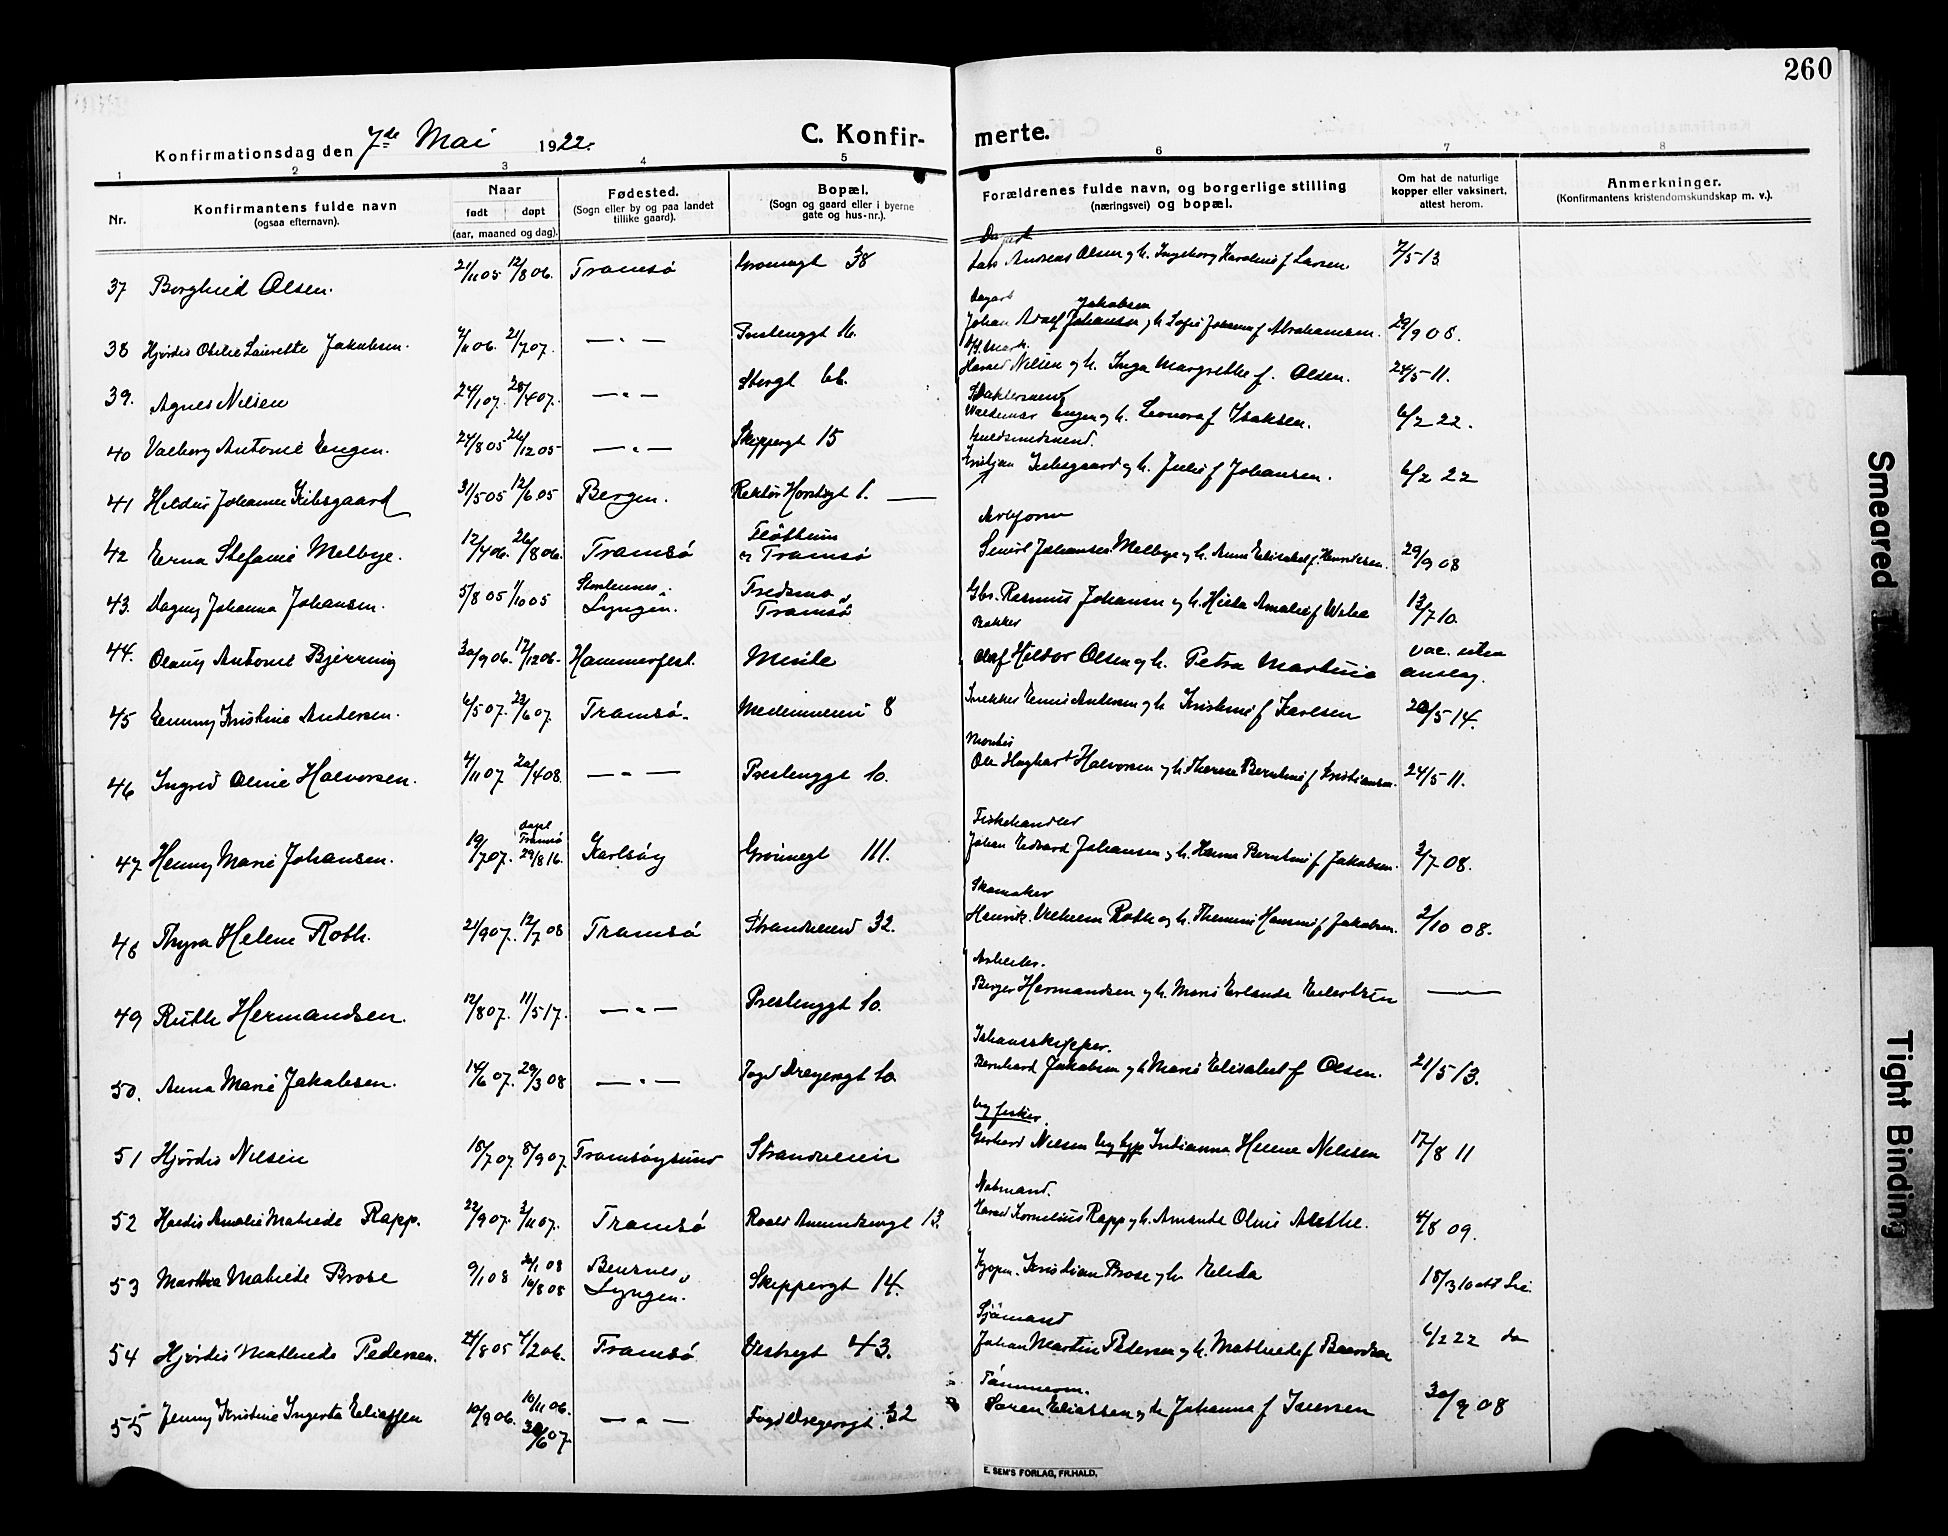 260
Konfirmationsdag den 7de Mai 1922.
C. Konfirmerte.
1 2 3 4 5 6 7 8
Nr.
Konfirmantens fulde navn
(ogsaa efternavn).
Naar
født døpt
(aar, maaned og dag).
Fødested.
(Sogn eller by og paa landet
tillike gaard).
Bopæl.
(Sogn og gaard eller i byerne
gate og hus-nr.).
Forældrenes fulde navn, og borgerlige stilling
(næringsvei) og bopæl.
Om hat de naturlige
kopper eller vaksinert,
attest herom.
Anmerkninger.
(Konfirmantens kristendomskundskap m. v.).
37 Borghild Olsen. 21/11 05 12/8 06. Tromsø Grønnegt 38 Lars Andreas Olsen og h. Ingeborg Karoline f Larsen 7/5 13
38 Hjørdis Otelie Laurette Jakobsen. 21/7 07. — " — Prestenggt 16. Jakobsen
Johan Adolf Johansen og h. Sofie Johanna f Abrahamsen. 29/9 08.
39. Agnes Nilsen 24/1 07. 28/4 07. — " — Storgt 66. Harald Nilsen og h. Inga Margrethe f. Olsen. 24/5 11.
40 Valborg Antonie Engen. 24/8 05 26/12 05 — " — Skippergt 15 Waldemar Engen og h. Leonora f Isaksen. 6/2 22.
Guldsmedsvend.
41 Hildur Johanne Kibsgaard 31/5 05 12/6 05 Bergen. Rektor Horstsgt 1. — Kristian Kibsgaard og h. Julie f Johansen. 6/2 22
42 Erna Stefanie Melbye. 12/4 06. 26/8 06. Tromsø Tromsø Johansen Melbye og h. Anna Elisabet f. 29/9 08
43. Dagny Johanna Johansen. 5/8 05 1/10 05 Lyngen. Tromsø Gbr. Rasmus Johansen og h. Hilda Amalie f 13/7 10.
44. Olaug Antonie Bjerring 30/9 06. 17/12 06. Hammerfest. Minde Olaf Heldor Olsen og h. Petra Martinie vac. uten
anslag.
45 Emmy Kristine Andersen. 6/5 07. 23/6 07. Tromsø. 8 Snekker Andersen og h. Kristine f Karlsen 20/5 14.
46 Ingrid Oline Halvorsen. 4/11 07. 20/4 08. — " — Prestenggt 10. Ole Halvorsen og h. Therese Berntine f Kristiansen. 24/5 11.
Fiskehandler
47 Henny Marie Johansen. 19/7 07. døpt
Tromsø
29/8 16. Karlsøy Grønnegt 111. Johan Edvard Johansen og h. Hanna Berntine f Jakobsen. 3/7 08.
Skomaker
48 Thyra Helene Roth. 21/9 07. 12/7 08 Tromsø Strandveien 32. Henrik Vilhelm Roth og h. f Jakobsen. 2/10 08.
Arbeider.
49 Ruth Hermandsen. 12/8 07. 11/5 17. — " — Prestenggt 10. Birger Hermandsen og h. Marie Erlanda Eilertsen —
Ishavsskipper.
50. Anna Marie Jakobsen. 14/6 07. 29/3 08 — " — Fogd Dreyersgt 10. Bernhard Jakobsen og h Marie Elisabet f Olsen. 21/5 13.
ug. fisker.
51 Hjørdis Nilsen 18/7 07 8/9 07. Tromsøysund Strandveien Gerhard Nilsen Julianna Helene Nilsen 17/8 11
52 Hardis Amalie Matilde Rapp. 22/9 07. 3/11 07. Tromsø Roald Amundsensgt 13. Kornelius Rapp og h. Amanda Oline 4/8 09.
53 Martha Matilde Brose 9/1 08 16/8 08 Lyngen. Skippergt 14. Kristian Brose og h. Elida 18/3 10
Sjømand
54 Hjørdis Mathilde Pedersen. 24/8 05 4/2 06. Tromsø Vestregt 43. Johan Martin Pedersen og h. Mathilde f Baardsen 6/2 22 do
Tømmerm.
55 Jenny Kristine Ingerta Eliassen 10/9 06. 10/11 06.
30/6 07. — " — Fogd Dreyersgt. 32 Søren Eliassen og h Johanna f Iversen 30/9 08
E. SEM'S FORLAG, FR.HALD.
Smeared
Tight Binding